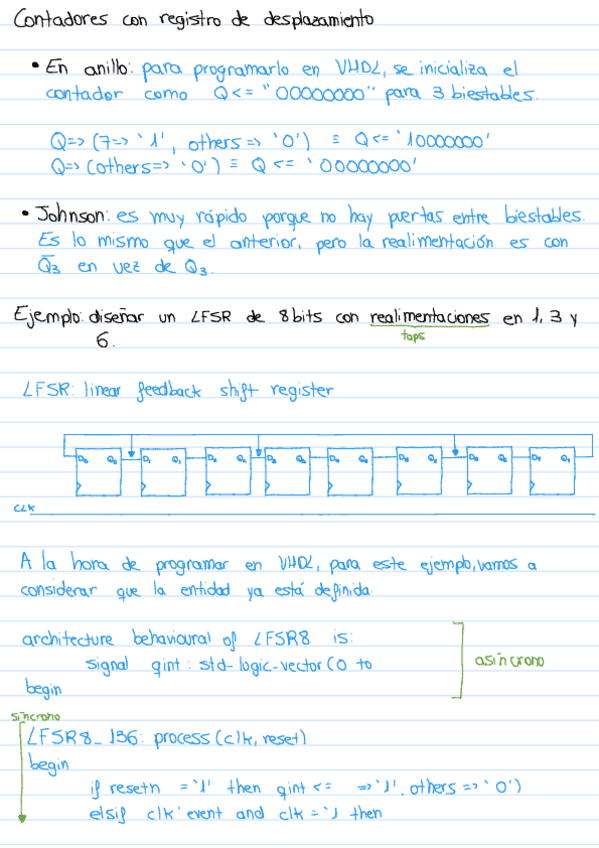 Contadores con registro de desplazamiento
• En anillo: para programarlo en VHDL, se inicializa el
contador como Q<= "00000000" para 3 biestables.
Q=> (7=> '1', others=> '0') ≡ Q<= '10000000'
Q=> (others=> '0') ≡ Q <= '00000000'
• Johnson: es muy rápido porque no hay puertas entre biestables.
Es lo mismo que el anterior, pero la realimentación es con
Q̅₃ en vez de Q₃.
Ejemplo: diseñar un LFSR de 8bits con realimentaciones en 1, 3 y
taps
6.
LFSR: linear feedback shift register
D₀ Q₀ D₁ Q₁
CLK
A la hora de programar en VHDL, para este ejemplo, vamos a
considerar que la entidad ya está definida.
architecture behavioural of LFSR8 is:
signal qint: std-logic-vector (0 to
asíncrono
begin
síncrono
LFSR8_136: process (clk, reset)
begin
if resetn = '1' then qint <= =>'1', others => '0')
elsif clk'event and clk = '1 then